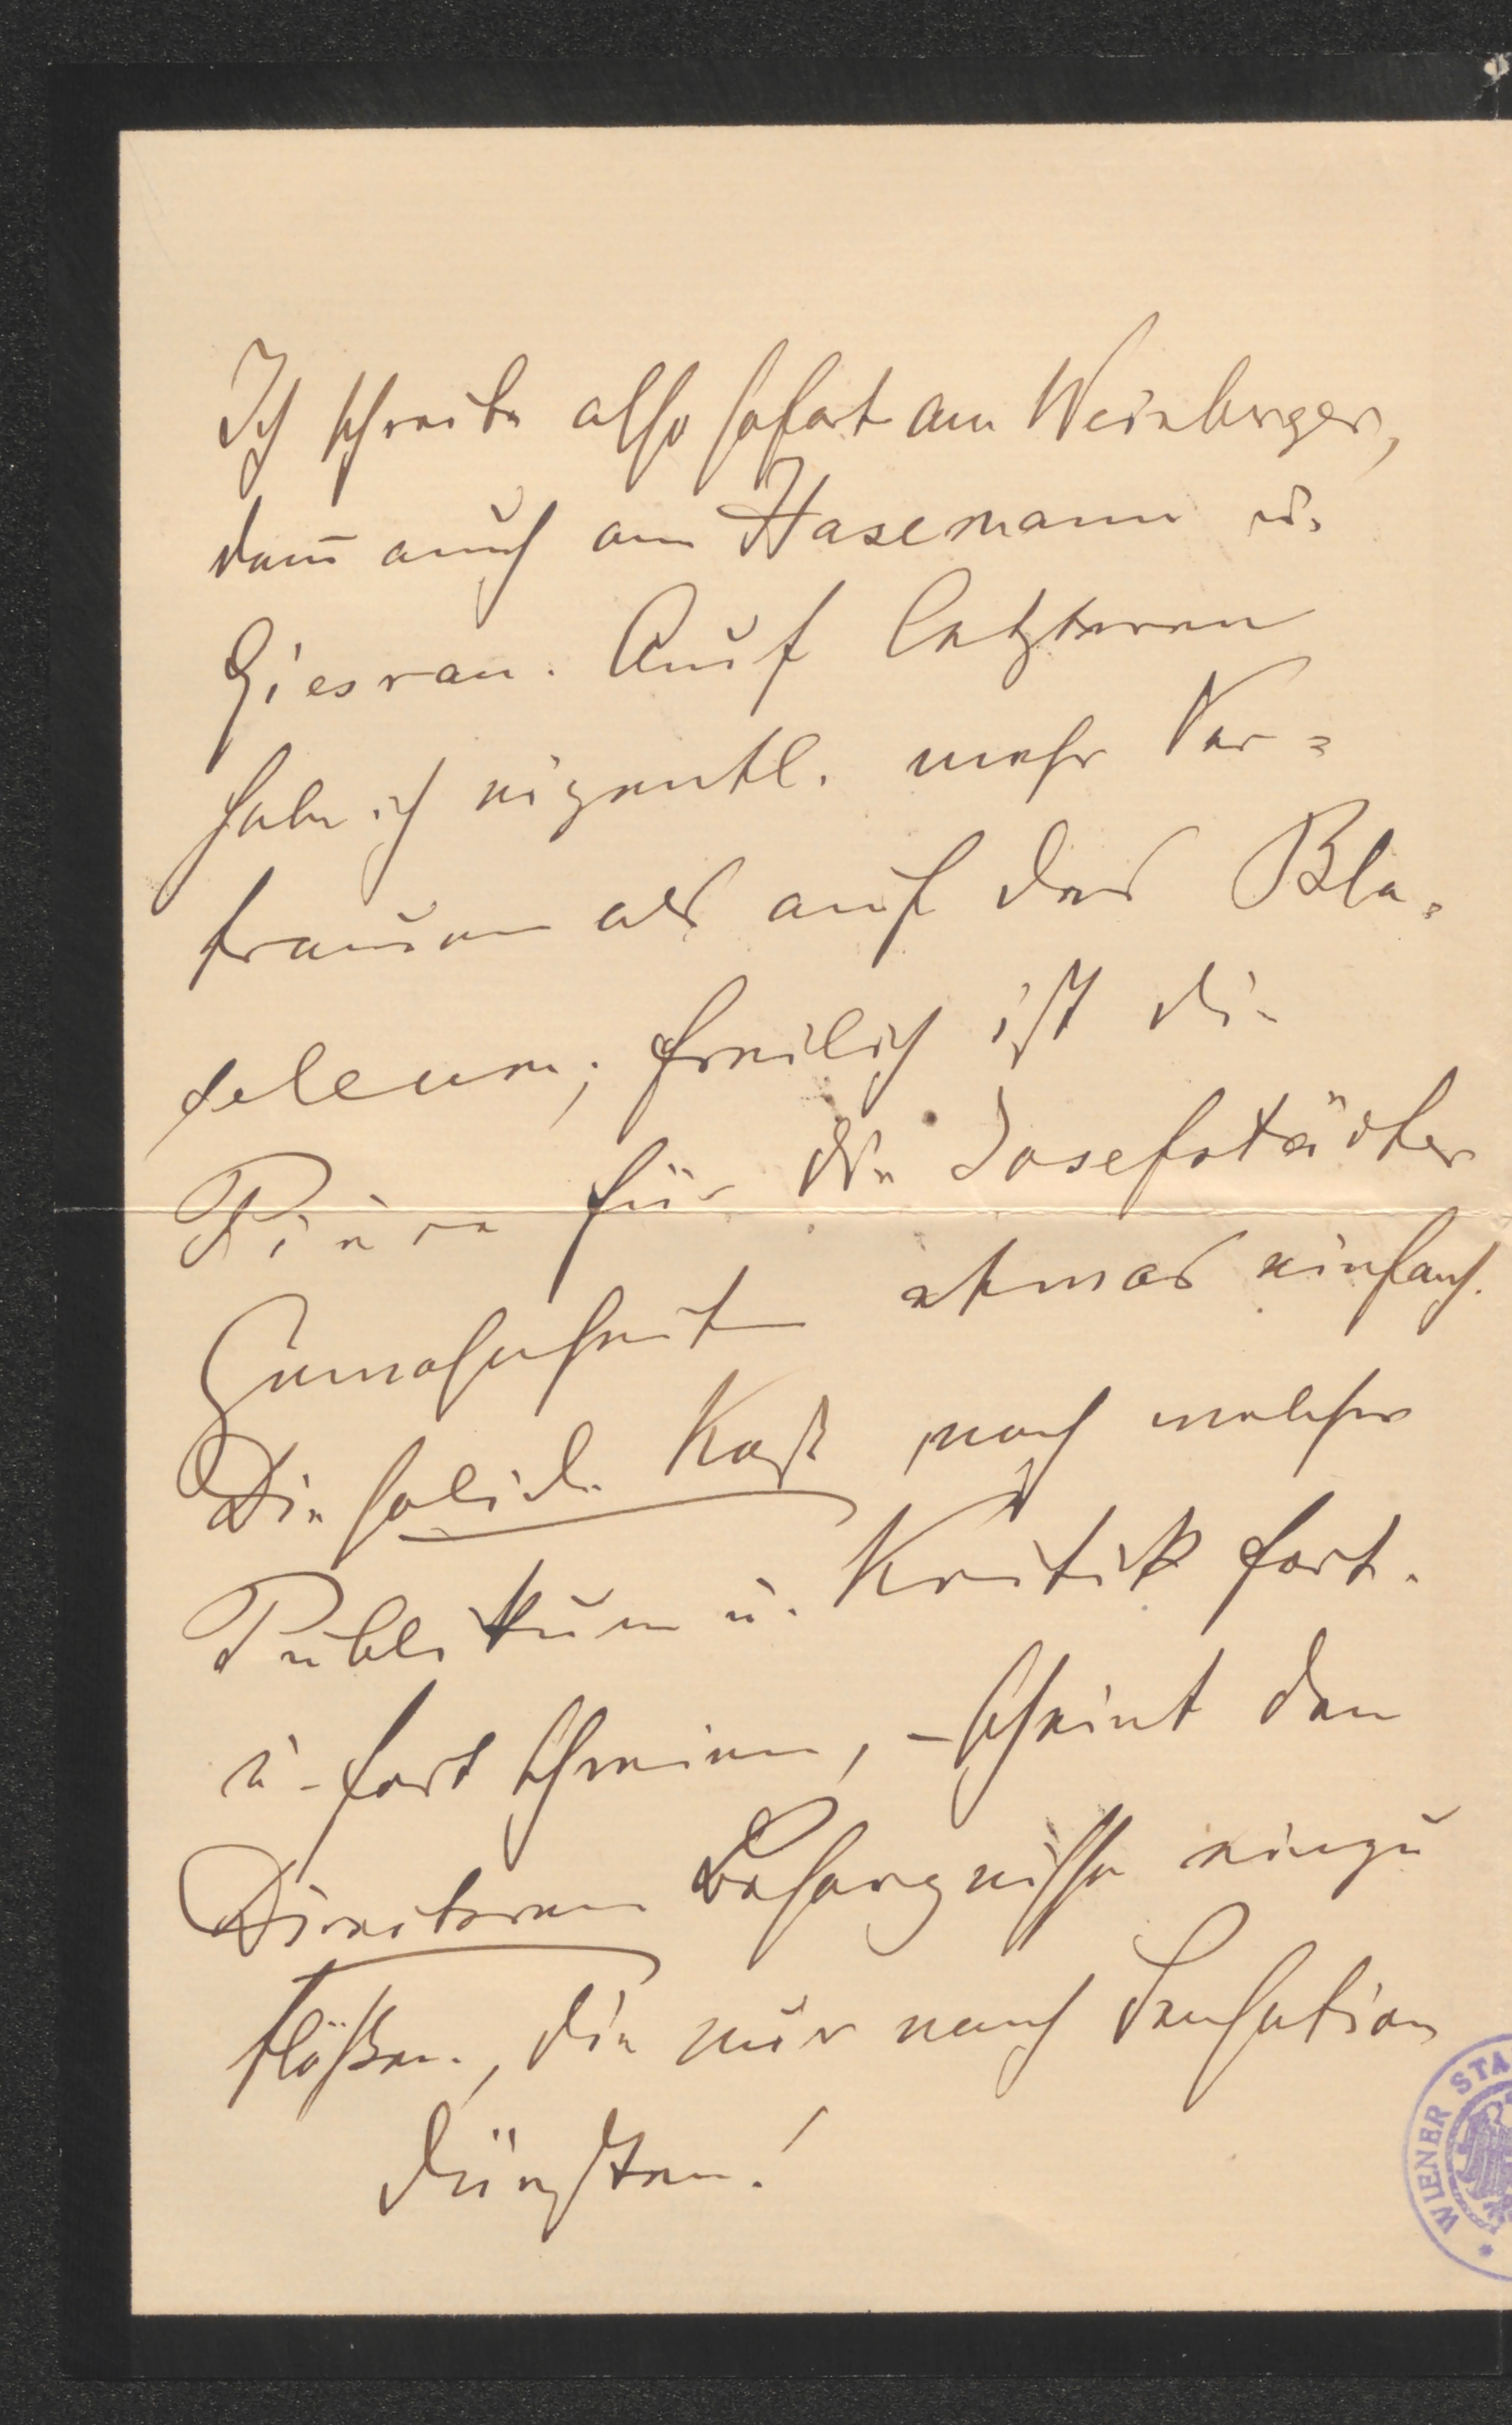 Ich schreibe also sofort an Weinberger,
dan̄ auch an Hasemann u.
Giesrau. Auf letzteren
habe ich eigentl. mehr Ver=
trauen als auf das Bla=
seleum; freilich ist die
Pièce für die Josefstädter
Gewohnheit etwas einfach.
Die solide Kost nach welcher
Publikum u. Kritik fort
u. fort schreien, – scheint den
Directoren Besorgnisse einzu
flößen, die nur nach Sensation
dürsten!
WIENER STA